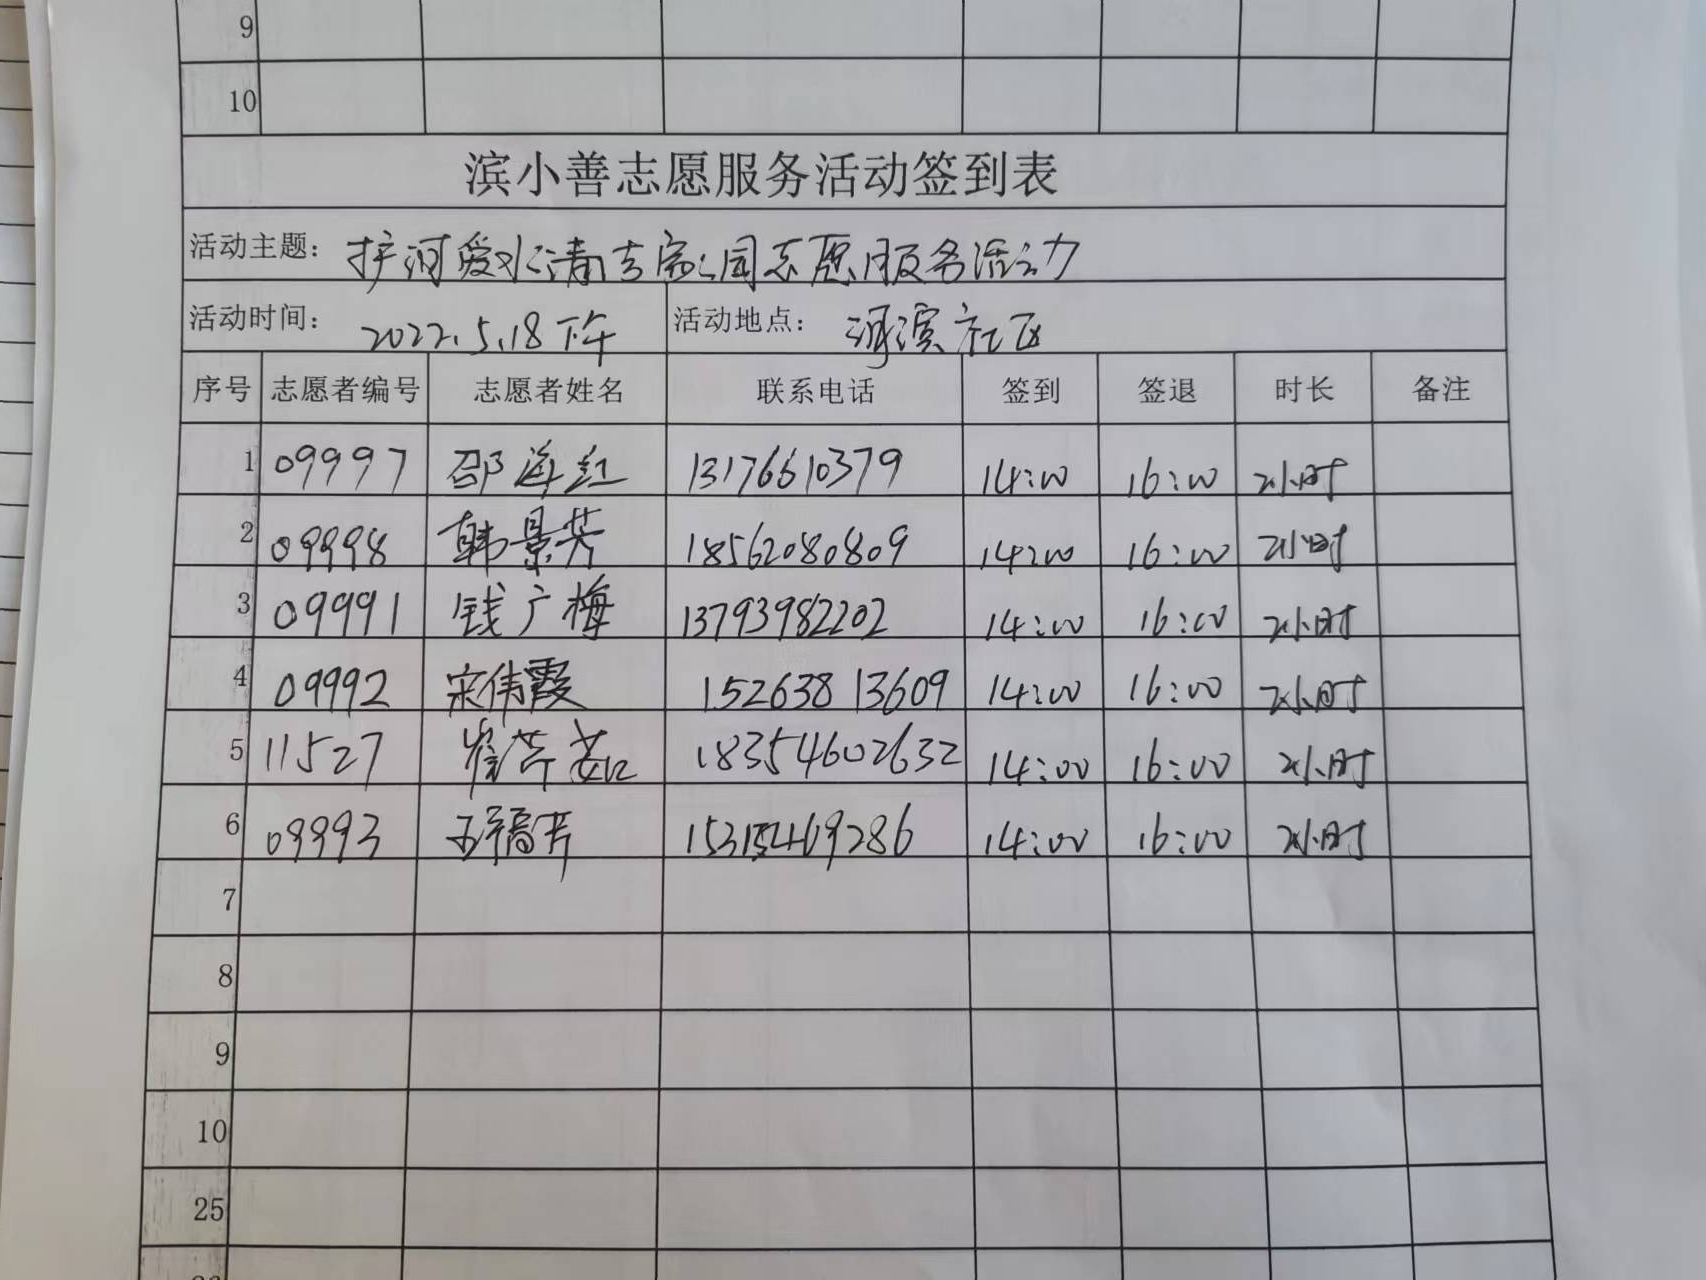 9
10
滨小善志愿服务活动签到表
活动主题： 护河爱水清吉家园志愿服务活动
活动时间： 2022.5.18下午 活动地点： 河滨社区
序号 志愿者编号 志愿者姓名 联系电话 签到 签退 时长 备注
1 09997 邵海红 13176610379 14:00 16:00 2小时
2 09998 韩景芳 18562080809 14:00 16:00 2小时
3 09991 钱广梅 13793982202 14:00 16:00 2小时
4 09992 宋伟霞 15263813609 14:00 16:00 2小时
5 11527 崔芹茹 18354602632 14:00 16:00 2小时
6 09993 14:00 16:00 2小时
7
8
9
10
25